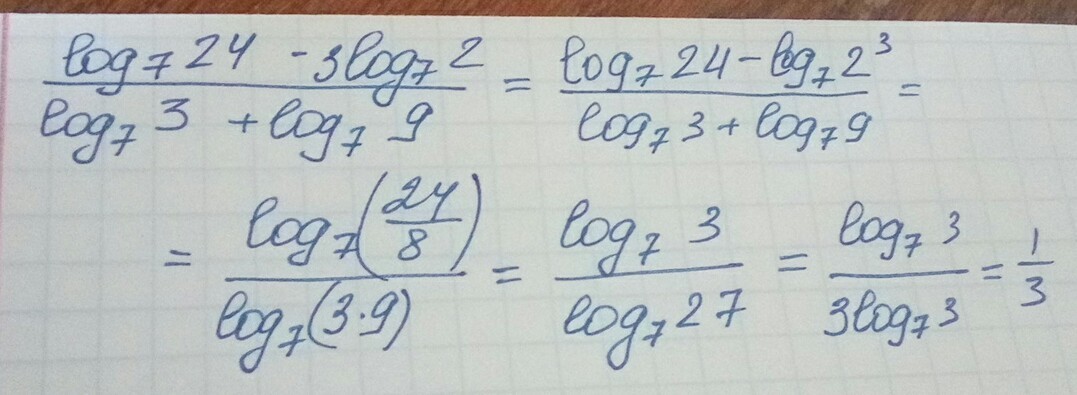 \frac{log_7 24 - 3log_7 2}{log_7 3 + log_7 9} = \frac{log_7 24 - log_7 2^3}{log_7 3 + log_7 9} =
= \frac{log_7(\frac{24}{8})}{log_7(3·9)} = \frac{log_7 3}{log_7 27} = \frac{log_7 3}{3log_7 3} = \frac{1}{3}